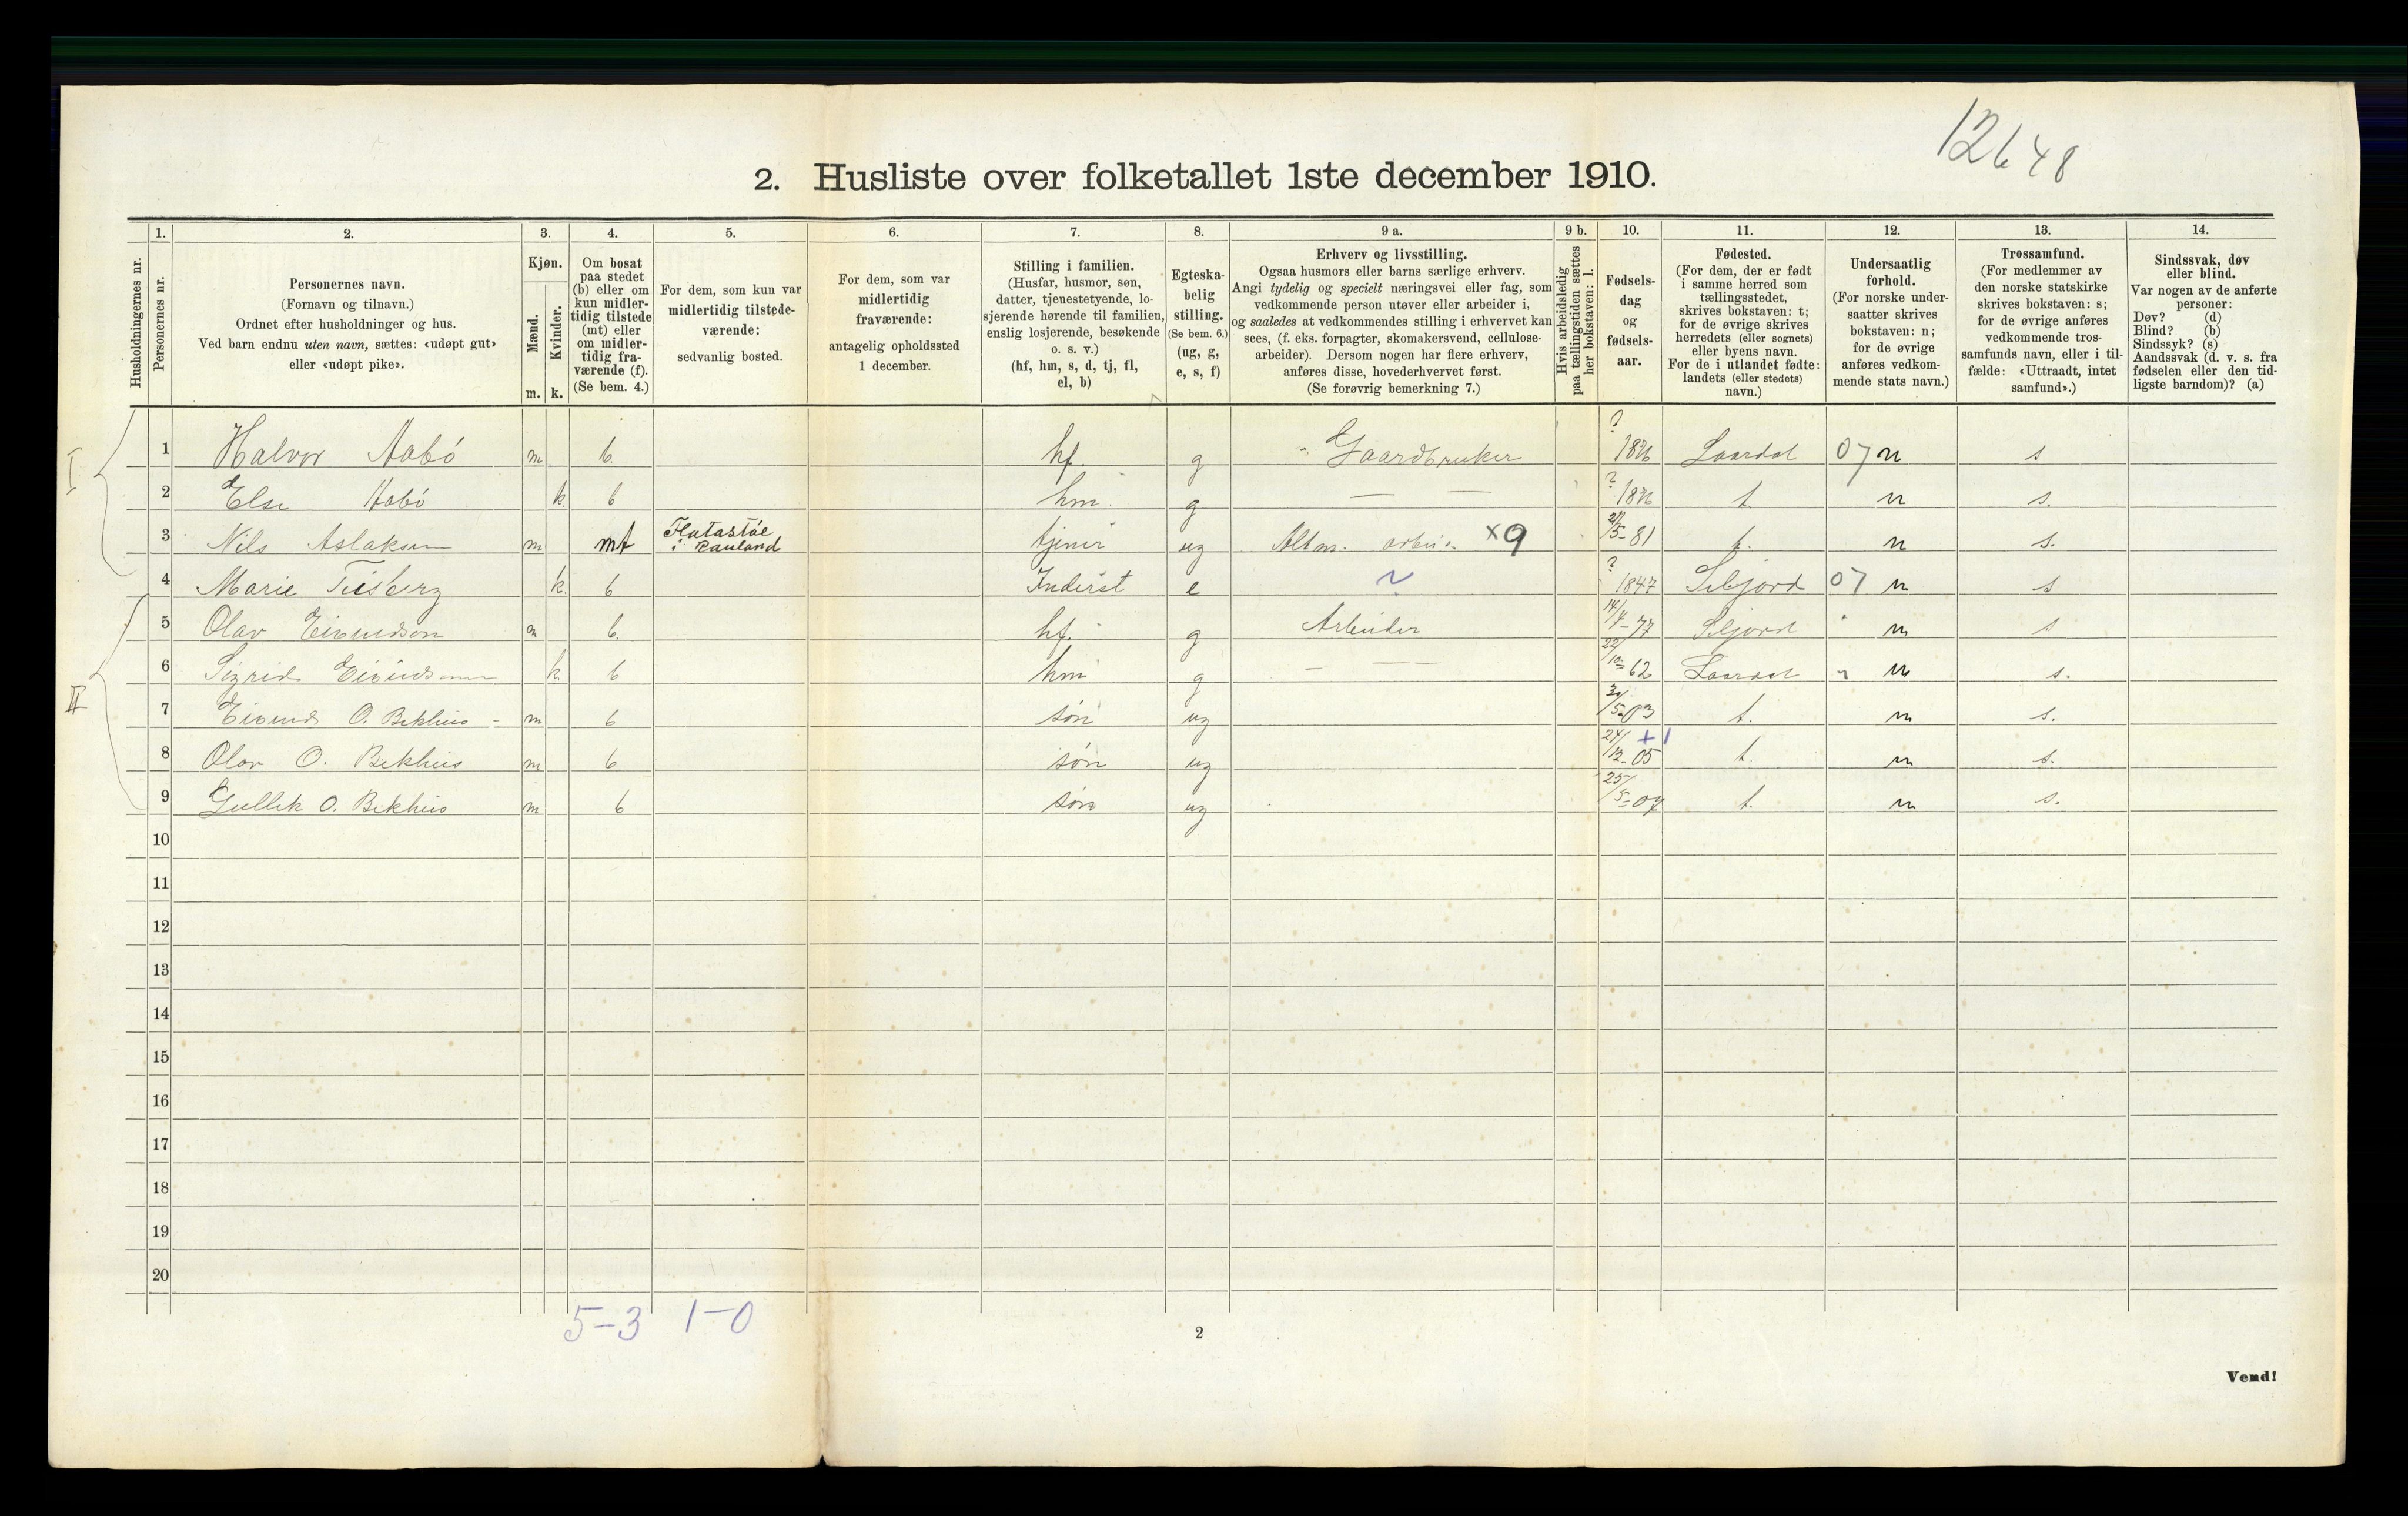 12648
2. Husliste over folketallet 1ste december 1910.
Husholdningernes nr.
1.
Personernes nr.
2.
Personernes navn.
(Fornavn og tilnavn.)
Ordnet efter husholdninger og hus.
Ved barn endnu uten navn, sættes: «udøpt gut»
eller «udøpt pike».
3.
Kjøn.
Mænd.
Kvinder.
m. k.
4.
Om bosat
paa stedet
(b) eller om
kun midler-
tidig tilstede
(mt) eller
om midler-
tidig fra-
værende (f).
(Se bem. 4.)
5.
For dem, som kun var
midlertidig tilstede-
værende:
sedvanlig bosted.
6.
For dem, som var
midlertidig
fraværende:
antagelig opholdssted
1 december.
7.
Stilling i familien.
(Husfar, husmor, søn,
datter, tjenestetyende, lo-
sjerende hørende til familien,
enslig losjerende, besøkende
o. s. v.)
(hf, hm, s, d, tj, fl,
el, b)
8.
Egteska-
belig
stilling.
(Se bem. 6.)
(ug, g,
e, s, f)
9 a.
Erhverv og livsstilling.
Ogsaa husmors eller barns særlige erhverv.
Angi tydelig og specielt næringsvei eller fag, som
vedkommende person utøver eller arbeider i,
og saaledes at vedkommendes stilling i erhvervet kan
sees, (f. eks. forpagter, skomakersvend, cellulose-
arbeider). Dersom nogen har flere erhverv,
anføres disse, hovederhvervet først.
(Se forøvrig bemerkning 7.)
9 b.
Hvis arbeidsledig
paa tællingstiden sættes
her bokstaven: l.
10.
Fødsels-
dag
og
fødsels-
aar.
11.
Fødested.
(For dem, der er født
i samme herred som
tællingsstedet,
skrives bokstaven: t;
for de øvrige skrives
herredets (eller sognets)
eller byens navn.
For de i utlandet fødte:
landets (eller stedets)
navn.)
12.
Undersaatlig
forhold.
(For norske under-
saatter skrives
bokstaven: n;
for de øvrige
anføres vedkom-
mende stats navn.)
13.
Trossamfund.
(For medlemmer av
den norske statskirke
skrives bokstaven: s;
for de øvrige anføres
vedkommende tros-
samfunds navn, eller i til-
fælde: «Uttraadt, intet
samfund».)
14.
Sindssvak, døv
eller blind.
Var nogen av de anførte
personer:
Døv? (d)
Blind? (b)
Sindssyk? (s)
Aandssvak (d. v. s. fra
fødselen eller den tid-
ligste barndom)? (a)
I
1 Halvor Aabö m b hf. g Gaardbruker ? Laardal 07 n s
2 Else Aabö k b hm. g — — ? t. n s.
3 Nils Aslaksen m mt Flatastöe i Rauland tjener ug x9 21/5-81 t. n s.
4 Marie k. b Inderst e ? 1847 07 n s
II
5 Olav Eivindson m b. hf. g Arbeider 14/4-77 n s
6 Sigrid k b hm g — — 22/10-62 Laardal n s.
7 Eivind O. Bekhus m b sön ug 30/5-03 t. n s.
8 Olav O. Bekhus m b sön ug 24/12-05 +1 t. n s.
9 Gullik O. Bekhus m b sön ug 25/5-07 t. n s.
10
11
12
13
14
15
16
17
18
19
20
5-3 1-0
2
Vend!